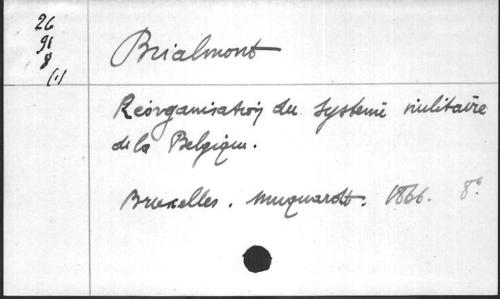 26
91
8
(1)
Brialmont
Réorganisation du Système militaire
de la Belgique.
Bruxelles. Muquardt. 1866. 8°